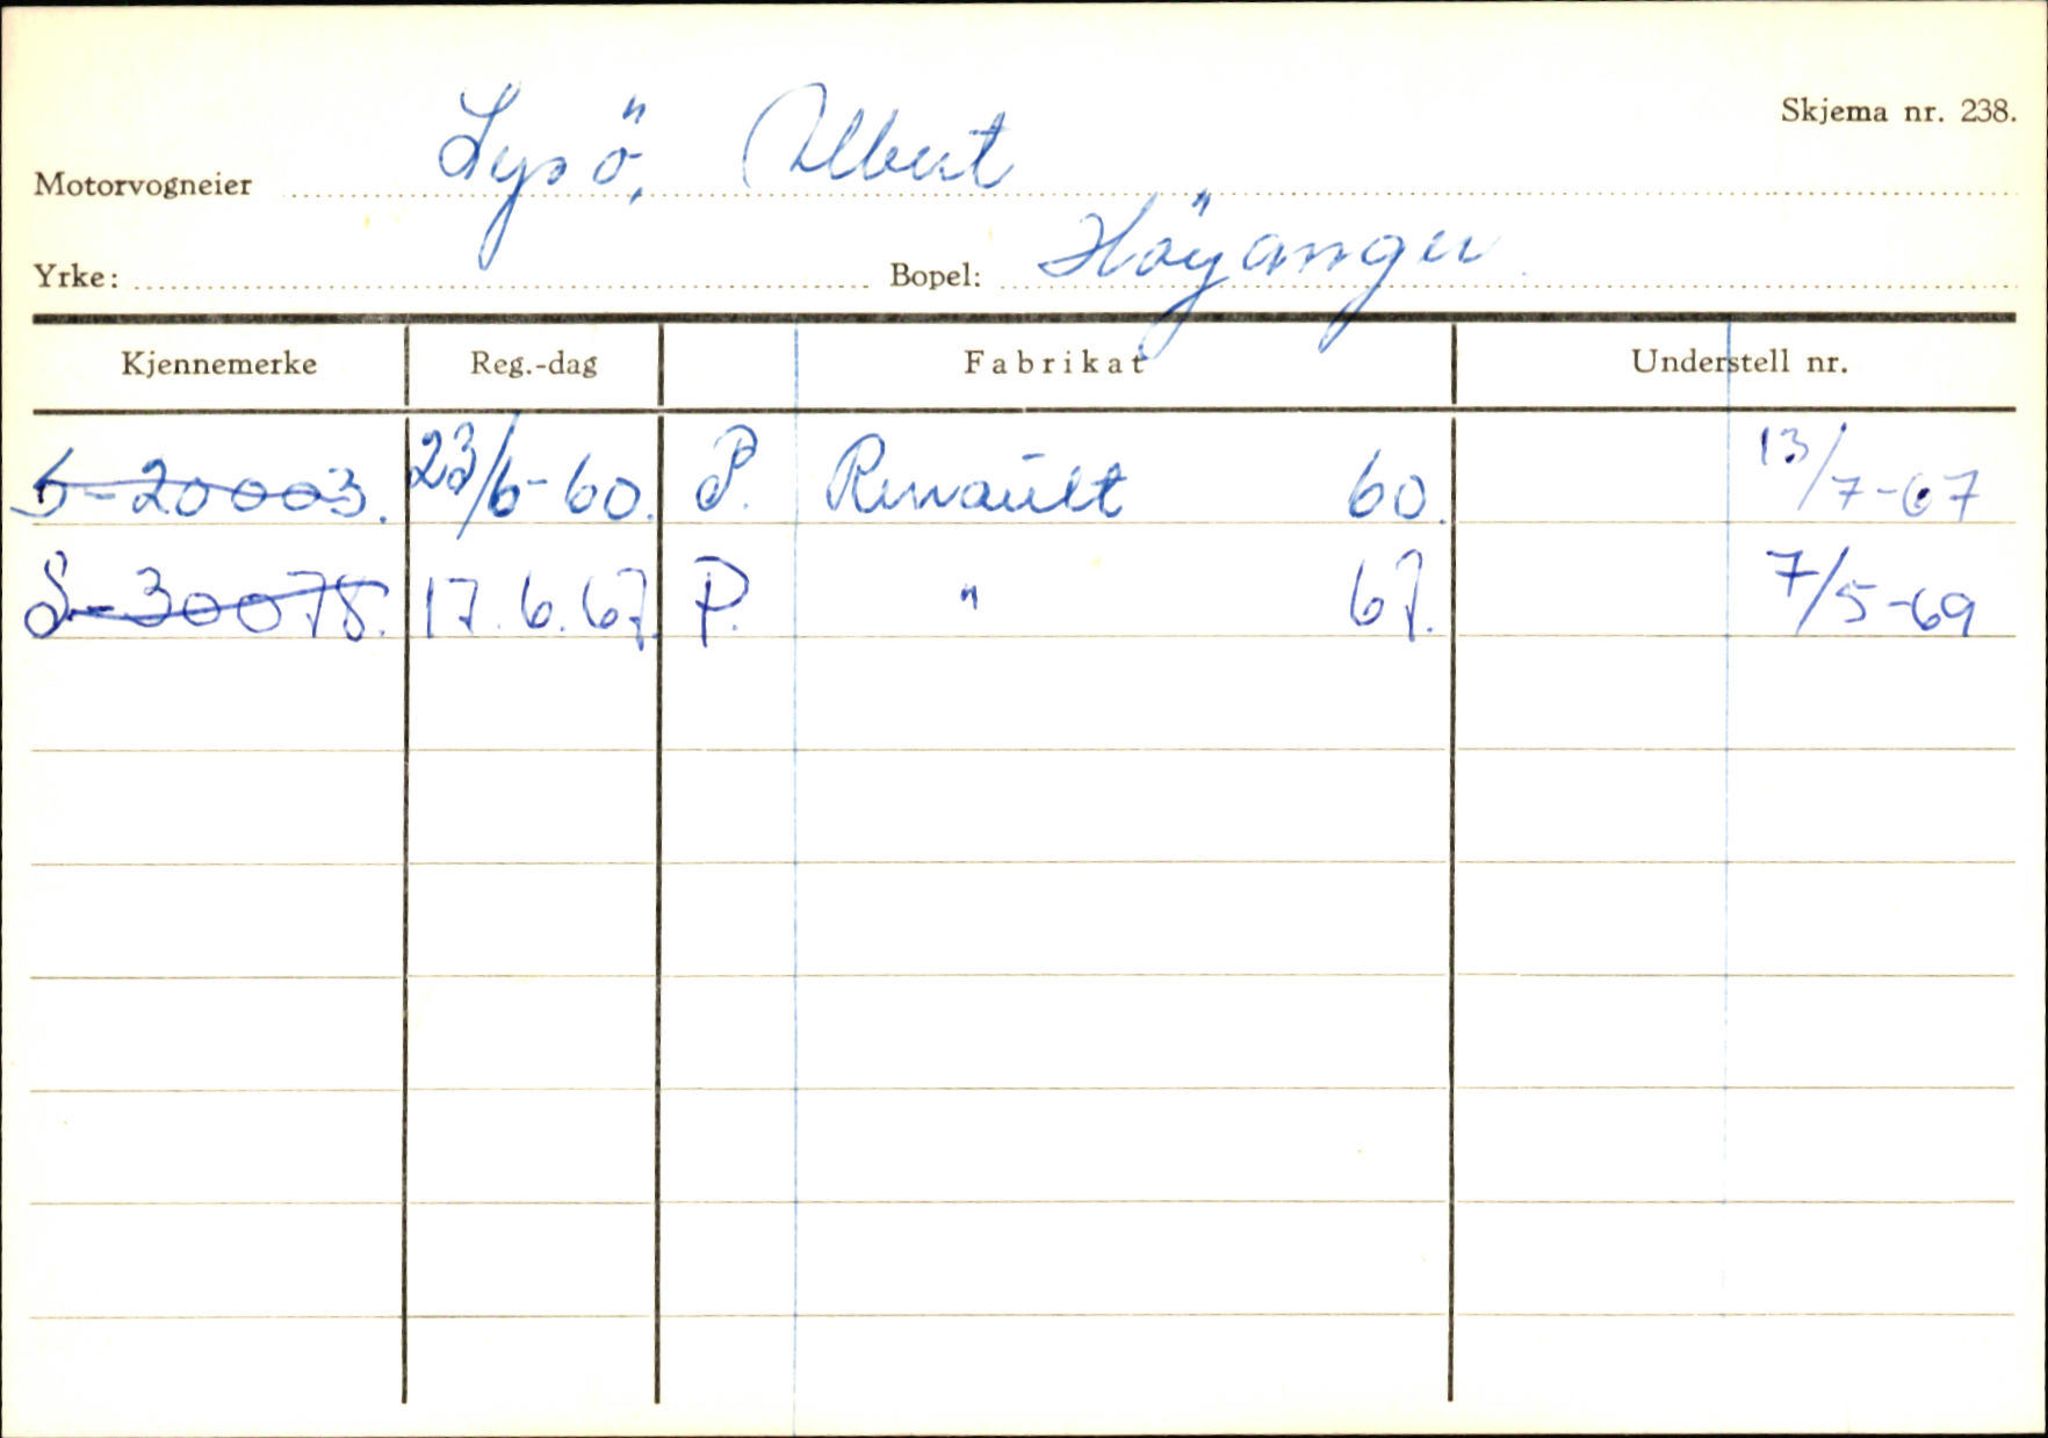 Skjema nr. 238.
Motorvogneier Lysö, Albert
Yrke: Bopel: Höyanger
Kjennemerke Reg.-dag Fabrikat Understell nr.
S-20003. 23/6-60. P. Renault 60. 13/7-67
S-30078. 17.6.67. P. " 67. 7/5-69